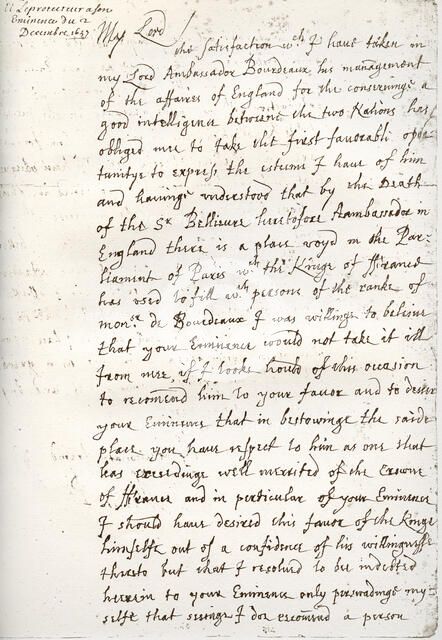 Le protecteur a son
Eminence du 2
Decembre 1657
My Lord
the satisfaction wch I have taken in
my Lord Ambassador Bourdeaux his management
of the affaires of England for the conserving a
good intelligence betweene the two Nations has
obliged mee to take the first favorable oppor
tunitye to express the esteeme I have of him
and havinge understood that by the Death
of the Sr Bellievre heretofore Aambassador in
England there is a place voyd in the Par-
liament of Paris wch the Kinge of ffrance
has used to fill wth persons of the ranke of
monsr de Bourdeaux I was willinge to believe
that your Eminence would not take it ill
from mee if I tooke hould of this occasion
to recomend him to your favor and to desire
your Eminence that in bestowinge the saide
place you have respect to him as one that
has exceedinge well merrited of the Crowne
of ffrance and in perticular of your Eminence
I should have desired this favor of the Kinge
himselfe out of a confidence of his willingnesse
thereto but that I resolved to be indebted
herein to your Eminence only perswadinge my
selfe that seinge I doe recomend a person